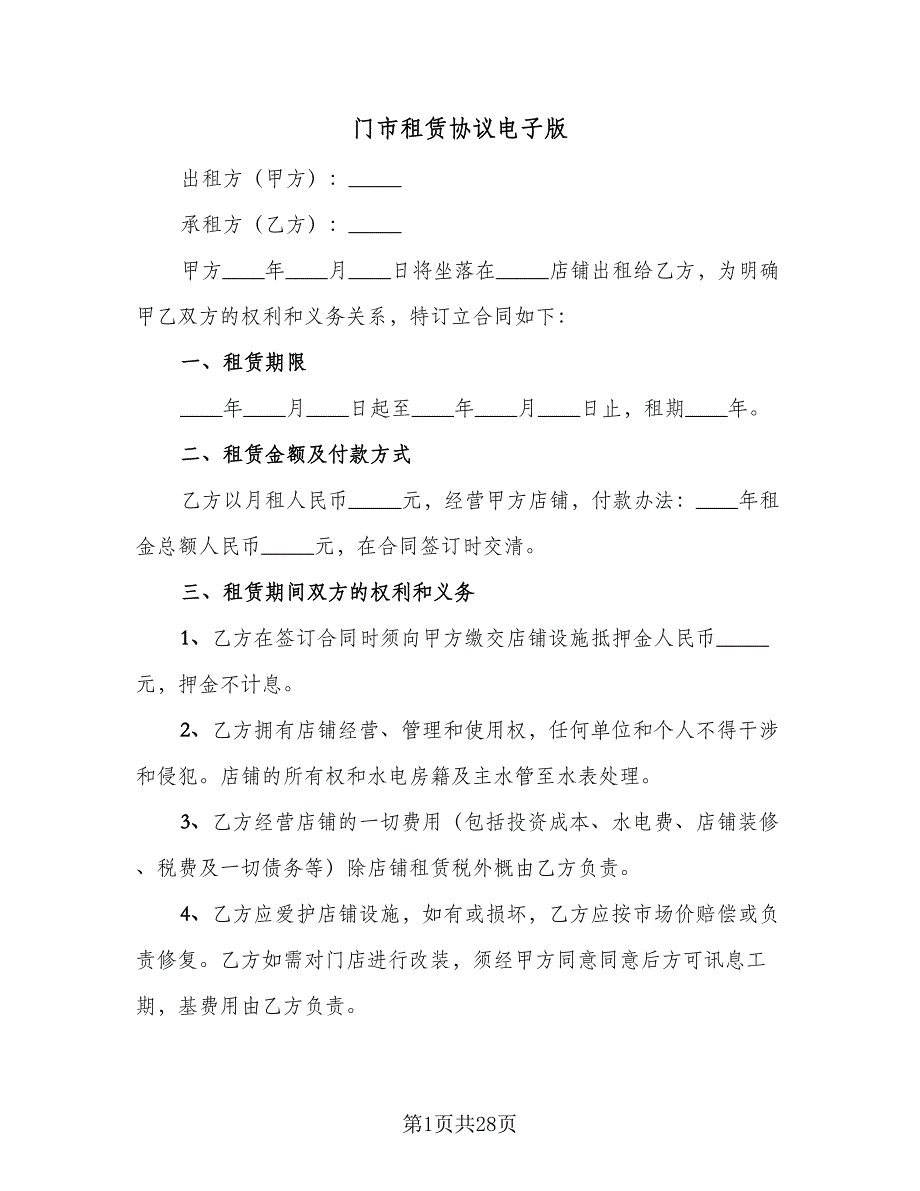 门市租赁协议电子版
出租方（甲方）：_____
承租方（乙方）：_____
甲方____年____月____日将坐落在_____店铺出租给乙方，为明确
甲乙双方的权利和义务关系，特订立合同如下：
一、租赁期限
____年____月____日起至____年____月____日止，租期____年。
二、租赁金额及付款方式
乙方以月租人民币_____元，经营甲方店铺，付款办法：____年租
金总额人民币_____元，在合同签订时交清。
三、租赁期间双方的权利和义务
1、乙方在签订合同时须向甲方缴交店铺设施抵押金人民币_____
元，押金不计息。
2、乙方拥有店铺经营、管理和使用权，任何单位和个人不得干涉
和侵犯。店铺的所有权和水电房籍及主水管至水表处理。
3、乙方经营店铺的一切费用（包括投资成本、水电费、店铺装修
、税费及一切债务等）除店铺租赁税外概由乙方负责。
4、乙方应爱护店铺设施，如有或损坏，乙方应按市场价赔偿或负
责修复。乙方如需对门店进行改装，须经甲方同意同意后方可讯息工
期，基费用由乙方负责。
第1页共28页